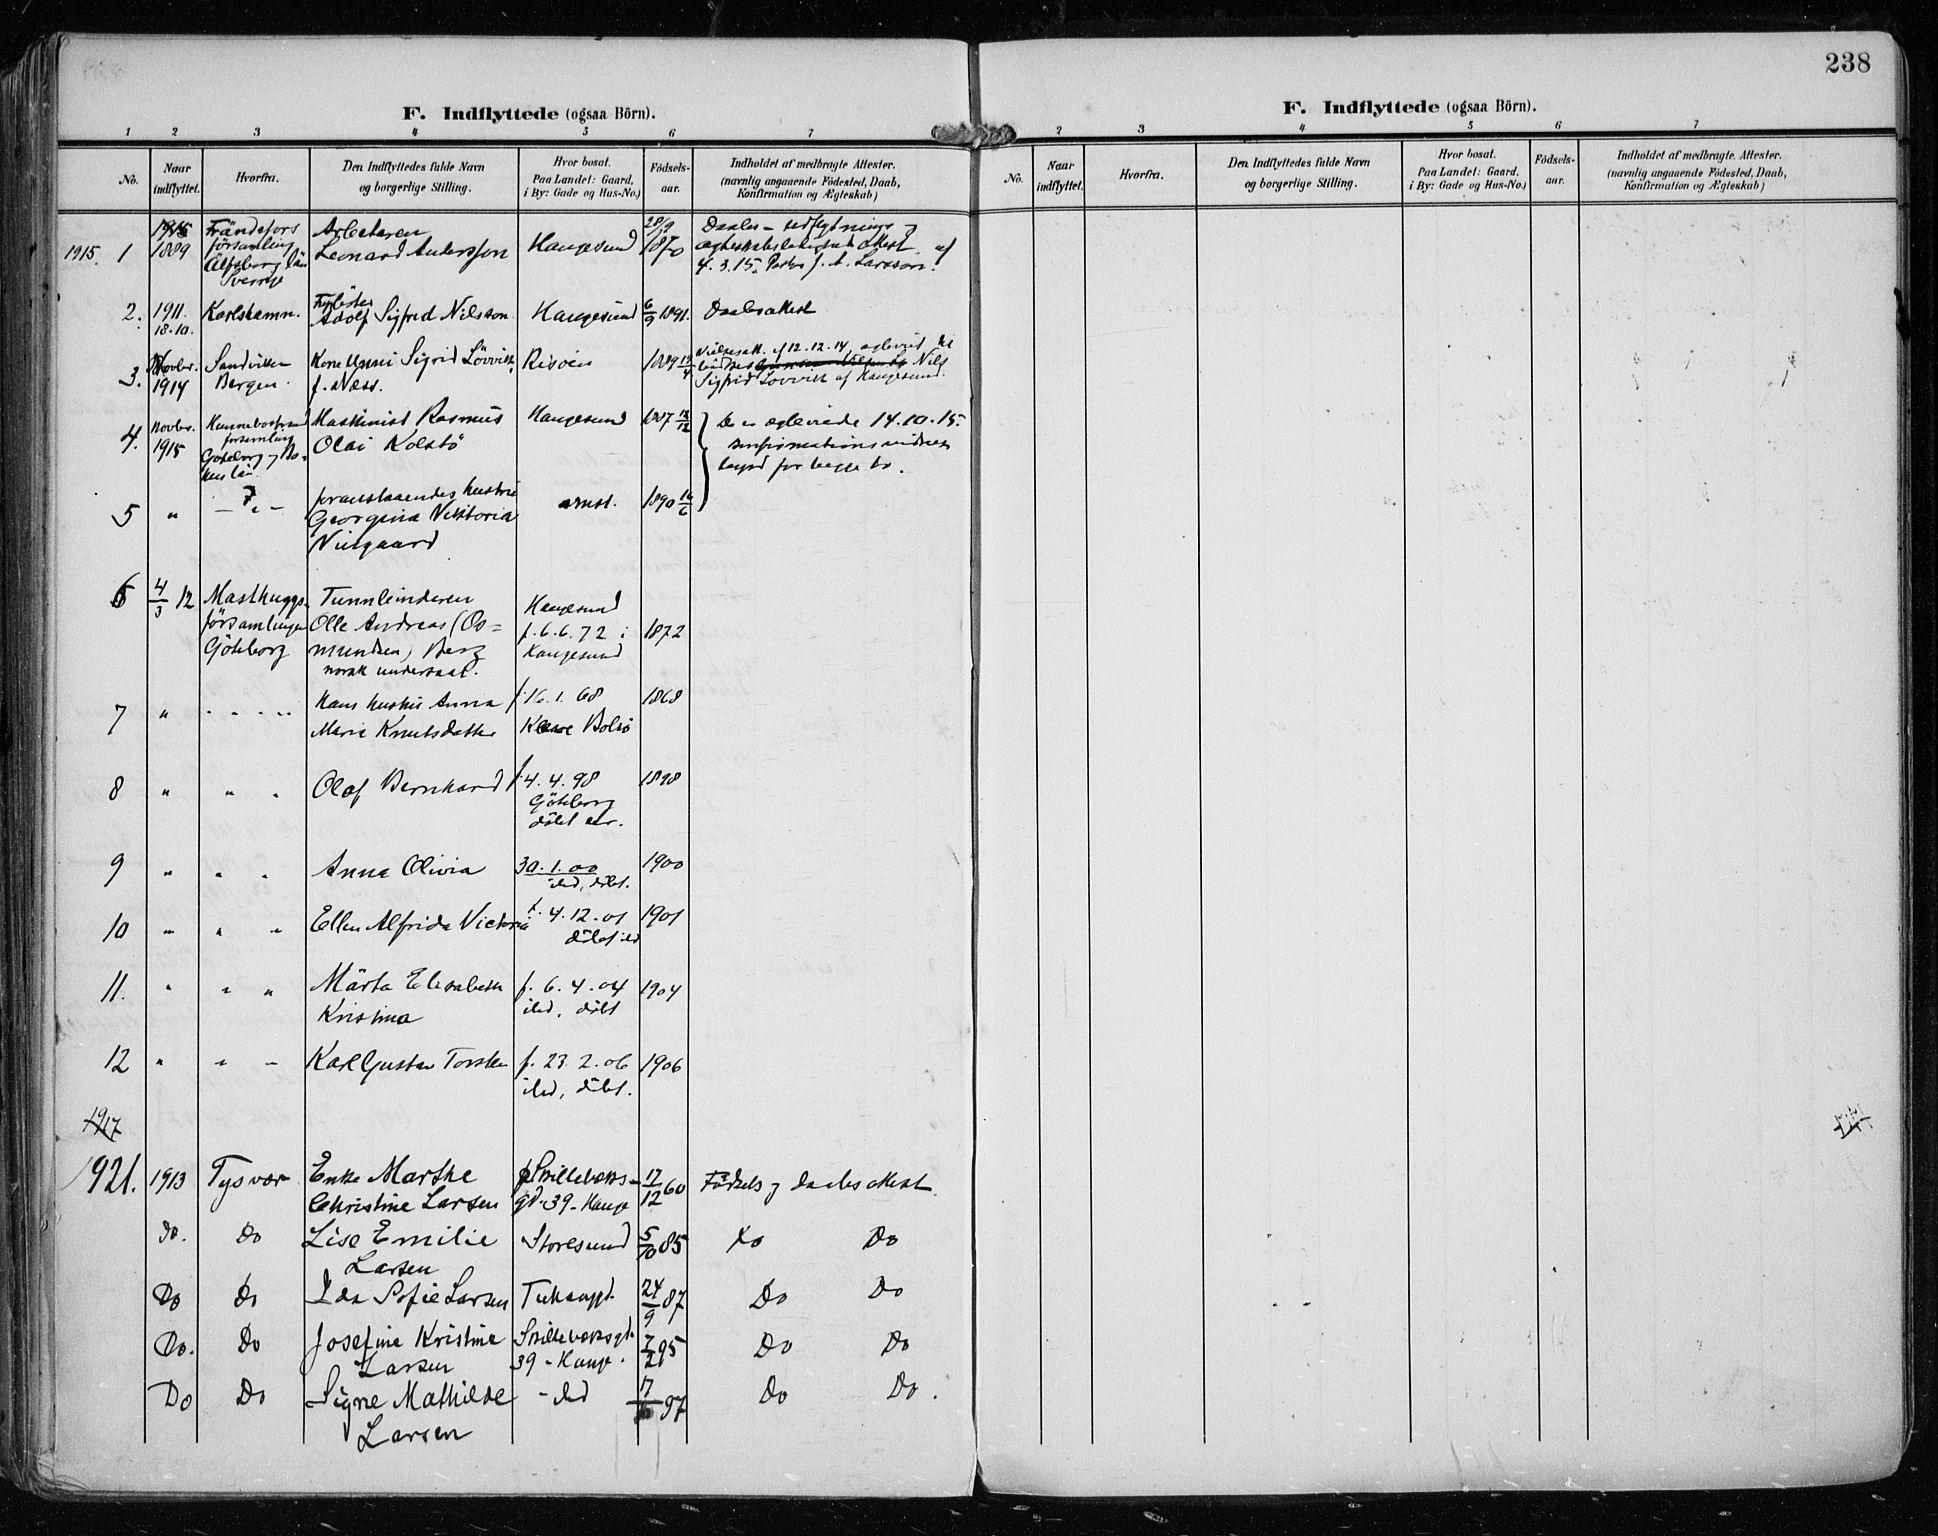 238
F. Indflyttede (ogsaa Börn).
1 2 3 4 5 6 7
No. Naar indflyttet. Hvorfra. Den Indflyttedes fulde Navn og borgerlige Stilling. Hvor bosat. Paa Landet: Gaard, i By: Gade og Hus-No.) Födsels-aar. Indholdet af medbragte Attester. (navnlig angaaende Födested, Daab, Konfirmation og Ægteskab)
F. Indflyttede (ogsaa Börn).
2 3 4 5 6 7
No. Naar indflyttet. Hvorfra. Den Indflyttedes fulde Navn og borgerlige Stilling. Hvor bosat. Paa Landet: Gaard, i By: Gade og Hus-No.) Födsels-aar. Indholdet af medbragte Attester. (navnlig angaaende Födested, Daab, Konfirmation og Ægteskab)
1915 Frändefors Arbetaren 28/9 Daabs-
1915. 1 1889 församling Leonard Andersson Haugesund 1870 attest af
Älfsborg län 4.3.15. Pastor J. A. Larsson.
Sverige
2. 1911. Karlshamn. Adolf Sigfred Nilsson Haugesund 6/9 1891. Daabsattest
18.10.
3. Novbr. Sandviken Kone Sigrid Lövvik Risöen 1889 Vielsesatt. af 12.12.14
1914 Bergen. f. Næss. Nils
Sigfrid Lovvik af Haugesund.
4. Novbr. Hunnebostrand Maskinist Rasmus Haugesund 1887 De er 14.10.15.
1915 församling Olai Kolstö
Göteborg og Bo- for begge to.
hus län
5 " - " - foranstaaendes hustru smst. 1890 16/6
Georgine Viktoria
6 4/3 12 Masthuggs- Tunnbinderen Haugesund
församlingen Olle Andreas (Os- f. 6.6.72 i 1872
Göteborg mundsen) Berg Haugesund
norsk undersaat.
7 " " " Hans hustru Anna f. 16.1.68 1868
Maria Knutsdatter
8 " " " Olaf Bernhard f. 4.4.98 1898
Göteborg
döbt
9 " " " Anna Olivia 30.1.00 1900
ibid, döbt.
10 " " " Ellen Alfrida Victoria f. 4.12.01 1901
döbt ibd
11. " " " Märta Elisabeth f. 6.4.04 1904
Kristina ibid, döbt
12 " " " Karl Gustav Torsten f. 23.2.06 1906
ibid, döbt.
1917
1921. 1913 Tysvær Enke Marthe Skillebæks- 17/12 60 Fødsels og daabsattest.
Christine Larsen gd. 39 - Hauge
Do. Do Lise Emilie Storesund 5/10 85 Do Do
Larsen
Do Do Ida Sofie Larsen 24/9 87 Do Do
Do. Do Josefine Kristine Skillebæksgt. 7/2 95 Do Do
Larsen 39 - Hauge.
Do Do Signe Mathilde - ibd 97 Do Do.
Larsen